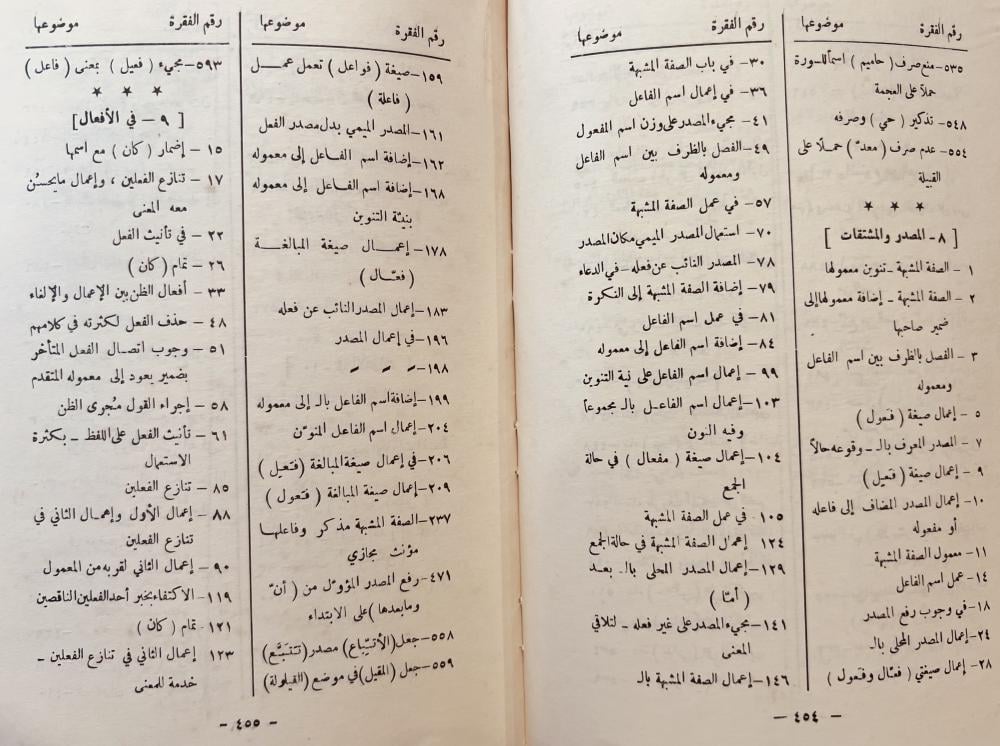 رقم الفقرة موضوعها
٥٣٥- منع صرف ( حاميم ) اسماً للسورة
حملاً على العجمة
٥٤٨- تذكير ( حي ) وصرفه
٥٥٤- عدم صرف ( معدّ ) حملاً على
القبيلة
★ ★ ★
[ ٨- المصدر والمشتقات ]
١ - الصفة المشبهة - تنوين معمولها
٢ - الصفة المشبهة - إضافة معمولها إلى
ضمير صاحبها
٣ - الفصل بالظرف بين اسم الفاعل
ومعموله
٥ - إعمال صيغة ( فَعول )
٧ - المصدر المعرف بالـ - وقوعه حالاً
٩ - إعمال صيغة ( فَعيل )
١٠- إعمال المصدر المضاف إلى فاعله
أو مفعوله
١١- معمول الصفة المشبهة
١٤- عمل اسم الفاعل
١٨- في وجوب رفع المصدر
٢٤- إعمال المصدر المحلى بالـ
٢٨- إعمال صيغتي ( فعّال وفَعول )
رقم الفقرة موضوعها
٣٠- في باب الصفة المشبهة
٣٦- في إعمال اسم الفاعل
٤١- مجيء المصدر على وزن اسم المفعول
٤٩- الفصل بالظرف بين اسم الفاعل
ومعموله
٥٧- في عمل الصفة المشبهة
٧٠- استعمال المصدر الميمي مكان المصدر
٧٨- المصدر النائب عن فعله - في الدعاء
٧٩- إضافة الصفة المشبهة إلى النكرة
٨١- في عمل اسم الفاعل
٨٤- إضافة اسم الفاعل إلى معموله
٩٩- إعمال اسم الفاعل على نية التنوين
١٠٣- إعمال اسم الفاعل بالـ مجموعاً
وفيه النون
١٠٤- إعمال صيغة ( مفعال ) في حالة
الجمع
١٠٥ في عمل الصفة المشبهة
١٢٤ إعمال الصفة المشبهة في حالة الجمع
١٢٩- إعمال المصدر المحلى بالـ بعد
( أمّا )
١٤١- مجيء المصدر على غير فعله - لتلاقي
المعنى
١٤٦- إعمال الصفة المشبهة بالـ
- ٤٥٤ -
رقم الفقرة موضوعها
١٥٩- صيغة ( فواعل ) تعمل عمل
( فاعلة )
١٦١- المصدر الميمي بدل مصدر الفعل
١٦٢- إضافة اسم الفاعل إلى معموله
١٦٨- إضافة اسم الفاعل إلى معموله
بنيّة التنوين
١٧٨- إعمال صيغة المبالغة
( فعّال )
١٨٣- إعمال المصدر النائب عن فعله
١٩٦- في إعمال المصدر
١٩٨- - - -
١٩٩- إضافة اسم الفاعل بالـ إلى معموله
٢٠٤- إعمال اسم الفاعل المنوّن
٢٠٦- في إعمال صيغة المبالغة ( فَعيل )
٢٠٩- إعمال صيغة المبالغة ( فَعول )
٢٣٧- الصفة المشبهة مذكر وفاعلها
مؤنث مجازي
٤٧١- رفع المصدر المؤوّل من ( أنّ
وما بعدها ) على الابتداء
٥٥٨- جعل (الأتِّباع) مصدر (تتَتَبَّع)
٥٥٩- جعل (المقيل) في موضع (القيلولة)
رقم الفقرة موضوعها
٥٩٣- مجيء ( فعيل ) بمعنى ( فاعل )
★ ★ ★
[ ٩ - في الأفعال ]
١٥ - إضمار ( كان ) مع اسمها
١٧ - تنازع الفعلين ، وإعمال ما يحسُن
معه المعنى
٢٢ - في تأنيث الفعل
٢٦ - تمام ( كان )
٣٣ - أفعال الظن بين الإعمال والإلغاء
٤٨ - حذف الفعل لكثرته في كلامهم
٥١ - وجوب اتصال الفعل المتأخر
بضمير يعود إلى معموله المتقدم
٥٨ - إجراء القول مُجرى الظن
٦١ - تأنيث الفعل على اللفظ - بكثرة
الاستعمال
٨٥ - تنازع الفعلين
٨٨ - إعمال الأول وإهمال الثاني في
تنازع الفعلين
٩٠ - إعمال الثاني لقربه من المعمول
١١٩ - الاكتفاء بخبر أحد الفعلين الناقصين
١٢١ - تمام ( كان )
١٢٣ إعمال الثاني في تنازع الفعلين -
خدمة للمعنى
- ٤٥٥ -